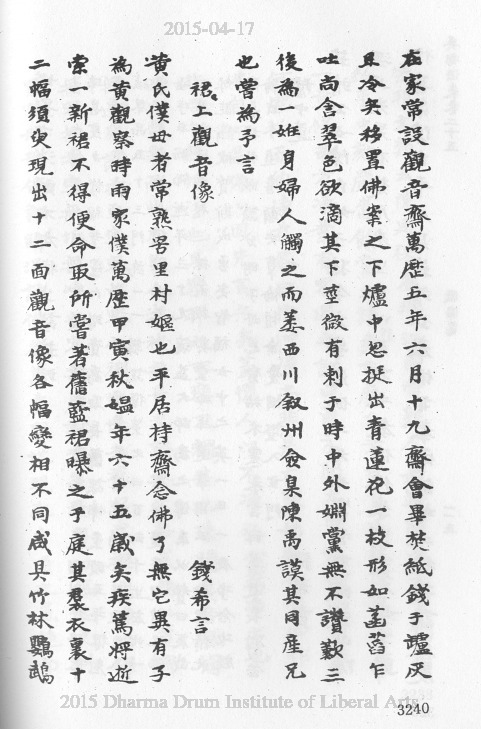 2015-04-17
在家常設觀音齋萬歷五年六月十九齋會畢焚紙錢于罏灰
且冷矣移置佛案之下爐中忽挺出青蓮花一枝形如菡萏乍
吐尚含翠色欲滴其下莖微有刺于時中外嫺黨無不讚歎三
後為一姙身婦人觸之而萎西川叙州僉臬陳禹謨其同產兄
也嘗為予言
裙上觀音像
錢希言
黄氏僕毋者常熟罟里村嫗也平居持齋念佛了無它異有子
為黄觀察時雨家僕萬歷甲寅秋媪年六十五歲矣疾篤將逝
索一新裙不得便命取所嘗著舊藍裙曝之乎庭其羣衣裏十
二幅須臾現出十二面觀音像各幅變相不同咸具竹林鸚鵡
2015 Dharma Drum Institute of Liberal Arts
3240